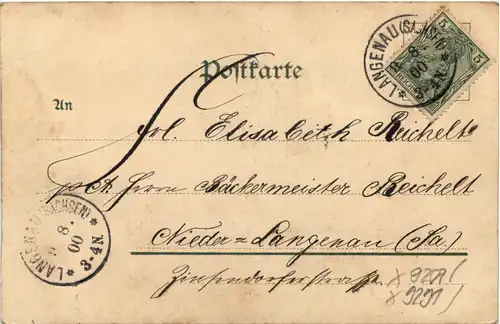 LANGENAU (SACHSEN)
8.
00
5
5
Postkarte
An
Frl. Elisabeth Reichelt
pct. Herrn Bäckermeister Reichelt
Nieder=Langenau (Sa.)
Zinsendorferstrasse.
LANGENAU (SACHSEN)
8.
00
3-4N
x 9291